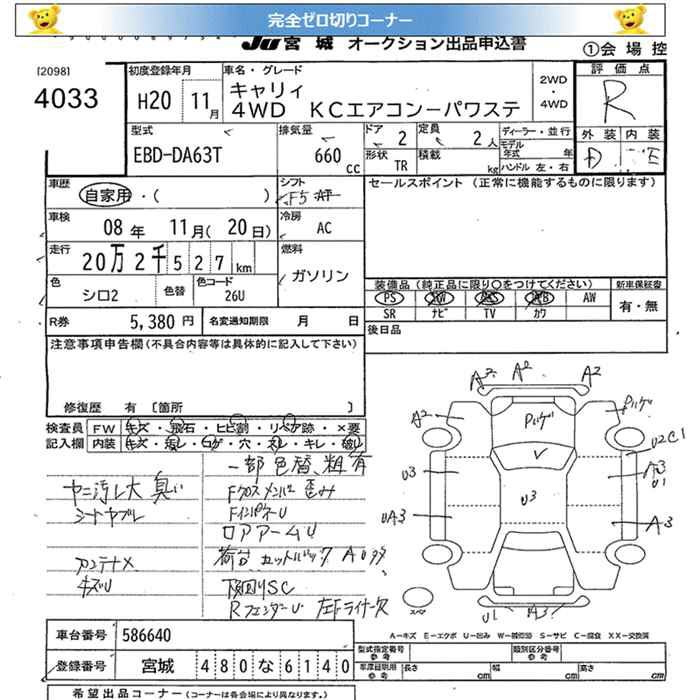 完全ゼロ切りコーナー
JU 宮城 オークション出品申込書
①会場控
[2098]
4033
初度登録年月
H20 11月
車名・グレード
キャリィ
4WD KCエアコンーパワステ
2WD
・
4WD
評価点
R
外装 内装
D E
型式
EBD-DA63T
排気量
660 cc
ドア 2
定員 2人
形状 TR
積載 kg
ディーラー・並行
モデル年式 年
ハンドル 左・右
車歴
自家用・( )
シフト
F5 AT
セールスポイント (正常に機能するものに限ります)
車検
08年 11月(20日)
冷房
AC
走行
20万2千527km
燃料
ガソリン
色
シロ2
色替
色コード
26U
装備品(純正品に限り○をつけてください)
新車保証書
PS PW AB AW
SR ナビ TV カワ
有・無
R券 5,380円
名変通知期限 月 日
後日品
注意事項申告欄(不具合内容等は具体的に記入して下さい)
修復歴 有 [箇所 ]
検査員 FW キズ・飛石・ヒビ割・リペア跡・×要
記入欄 内装 キズ・汚レ・コゲ・穴・スレ・キレ・破レ
一部色替、粗有
ヤニ汚レ大 臭い
Fクロスメンバー歪み
シートヤブレ
FインパクーU
ロアアームU
アンテナX
荷台カットバック
キズU
下回りSC
RフェンダーU 左Fライナー欠
A2 A2 A2
A2
パルゲ
パルゲ
U2C1
U3
U3
A3
U1
UA3
A3
U1 A3
スペア
A－キズ E－エクボ U－凹み W－補修跡 S－サビ C－腐食 XX－交換済
車台番号 586640
型式指定番号
参考
類別区分番号
参考
登録番号 宮城 480な6140
車庫証明用
参考
長さ cm 幅 cm 高さ cm
希望出品コーナー(コーナーは各会場により異なります。)